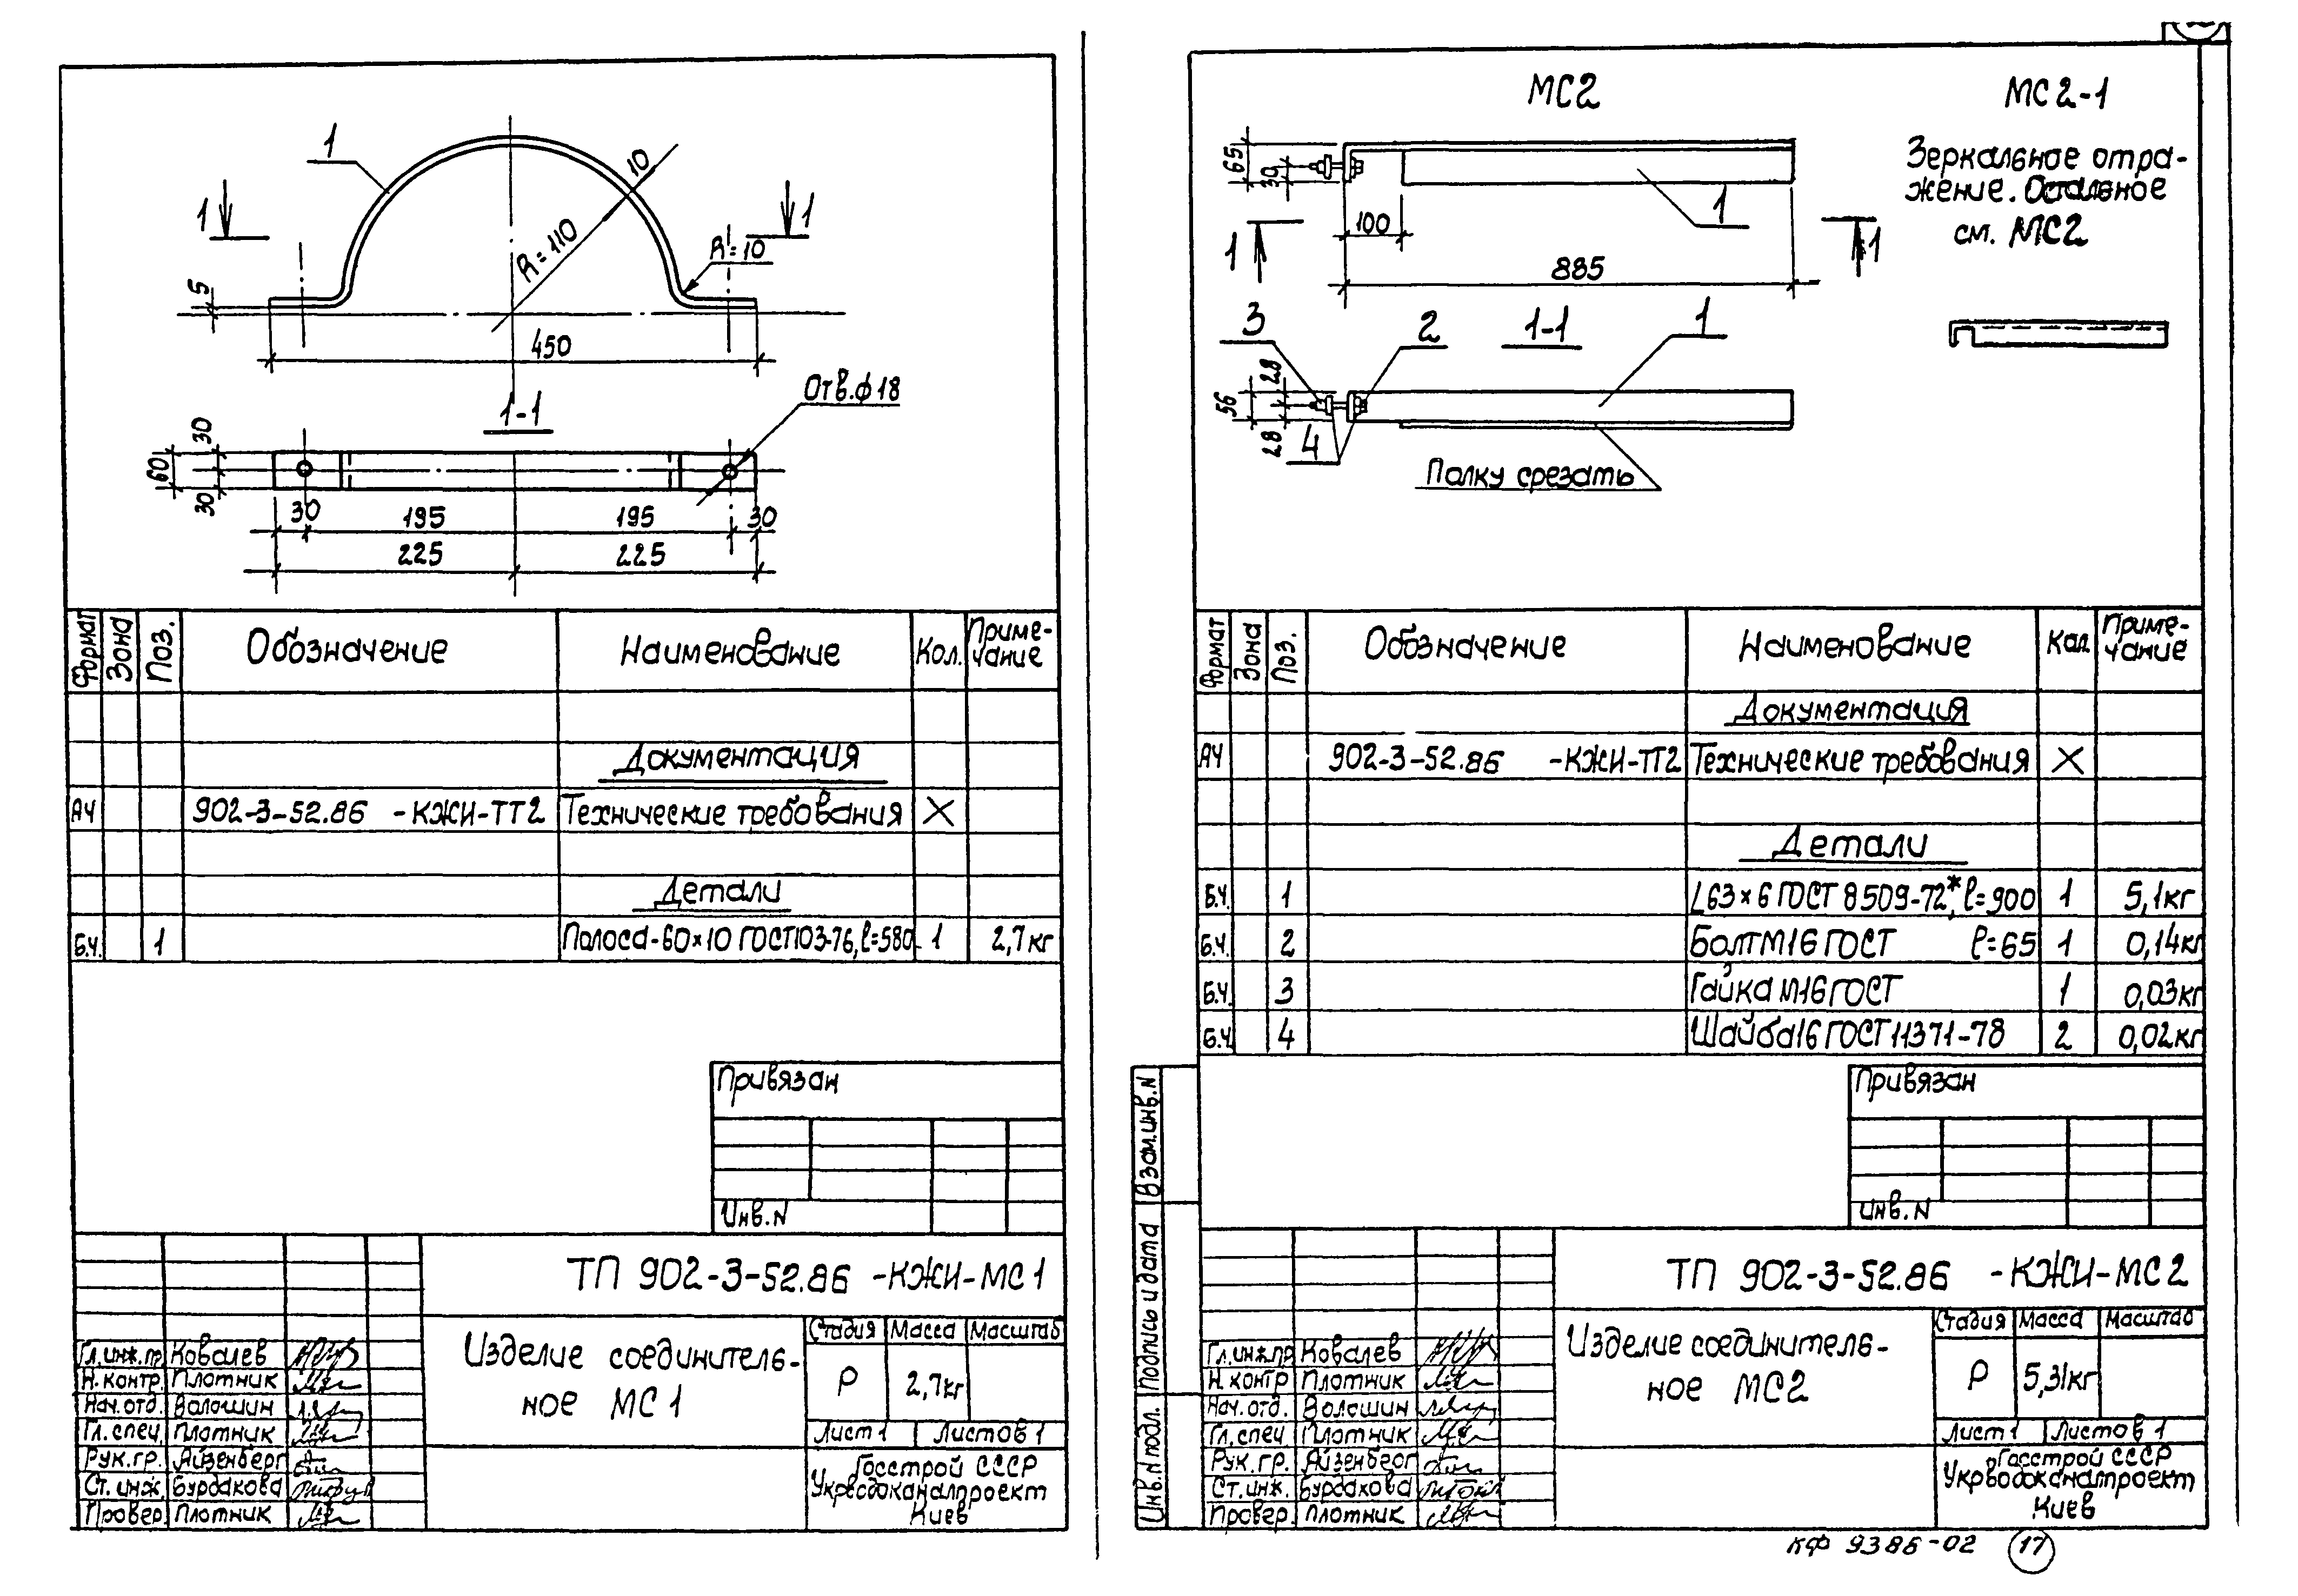 1
10
1
1
R=110
R=10
5
450
Отв.ф18
1-1
30
60
30
30
195
195
30
225
225
Формат
Зона
Поз.
Обозначение
Наименование
Кол.
Приме-
чание
Документация
А4
902-3-52.86 -КЖИ-ТТ2
Технические требования
X
Детали
Б.Ч.
1
Полоса-60×10 ГОСТ103-76, ℓ=580
1
2,7кг
Привязан
Инв.N
ТП 902-3-52.86 -КЖИ-МС1
Гл.инж.пр Ковалев
Н.контр. Плотник
Нач.отд. Волошин
Гл.спец. Плотник
Рук.гр. Айзенберг
Ст.инж. Бурдакова
Провер. Плотник
Изделие соединитель-
ное МС1
Стадия Масса Масштаб
Р 2,7кг
Лист1 Листов1
Госстрой СССР
Укрводоканалпроект
Киев
МС2
МС2-1
Зеркальное отра-
жение. Остальное
см. МС2
65
30
1
100
1
1
885
3
2
1-1
1
56
28
28
4
Полку срезать
Формат
Зона
Поз.
Обозначение
Наименование
Кол
Приме-
чание
Документация
А4
902-3-52.86 -КЖИ-ТТ2
Технические требования
X
Детали
Б.Ч. 1 L63×6 ГОСТ 8509-72*, ℓ=900 1 5,1кг
Б.Ч. 2 Болт М16 ГОСТ ℓ=65 1 0,14кг
Б.Ч. 3 Гайка М16 ГОСТ 1 0,03кг
Б.Ч. 4 Шайба16 ГОСТ 11371-78 2 0,02кг
Привязан
Инв.N
Взам.инв.N
Подпись и дата
Инв.N подл.
ТП 902-3-52.86 -КЖИ-МС2
Гл.инж.пр Ковалев
Н.контр Плотник
Нач.отд. Волошин
Гл.спец Плотник
Рук.гр. Айзенберг
Ст.инж. Бурдакова
Провер. Плотник
Изделие соединитель-
ное МС2
Стадия Масса Масштаб
Р 5,31кг
Лист1 Листов 1
Госстрой СССР
Укрводоканалпроект
Киев
КФ 9386-02 17